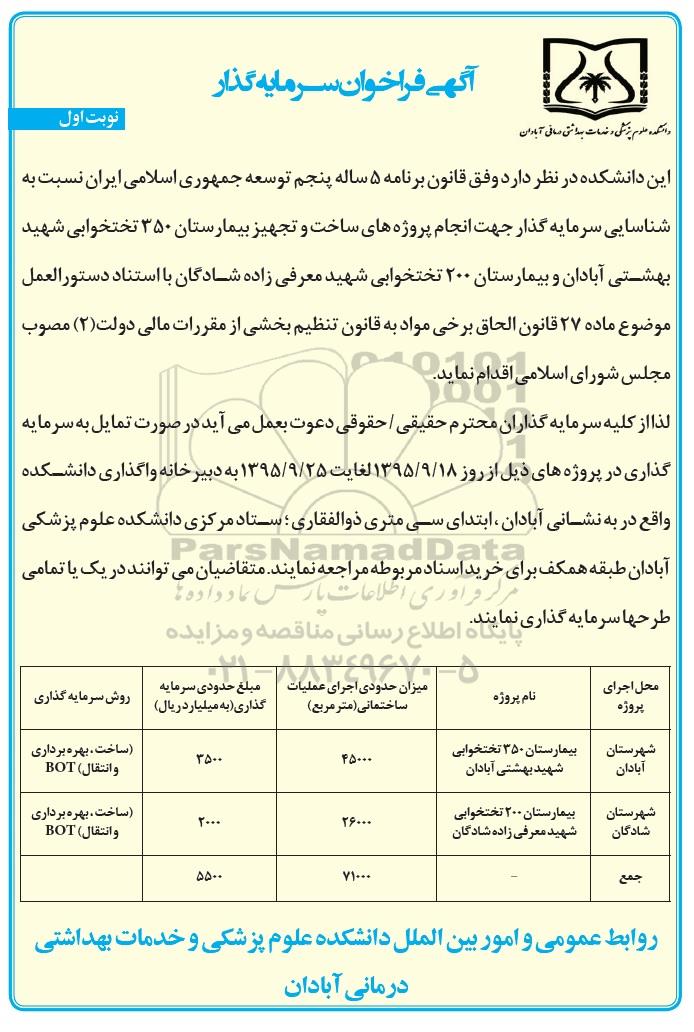 دانشکده علوم پزشکی و خدمات بهداشتی درمانی آبادان
آگهی فراخوان سرمایه گذار
نوبت اول
این دانشکده در نظر دارد وفق قانون برنامه ۵ ساله پنجم توسعه جمهوری اسلامی ایران نسبت به
شناسایی سرمایه گذار جهت انجام پروژه های ساخت و تجهیز بیمارستان ۳۵۰ تختخوابی شهید
بهشتی آبادان و بیمارستان ۲۰۰ تختخوابی شهید معرفی زاده شادگان با استناد دستورالعمل
موضوع ماده ۲۷ قانون الحاق برخی مواد به قانون تنظیم بخشی از مقررات مالی دولت(۲) مصوب
مجلس شورای اسلامی اقدام نماید.
لذا از کلیه سرمایه گذاران محترم حقیقی / حقوقی دعوت بعمل می آید در صورت تمایل به سرمایه
گذاری در پروژه های ذیل از روز ۱۳۹۵/۹/۱۸ لغایت ۱۳۹۵/۹/۲۵ به دبیرخانه واگذاری دانشکده
واقع در به نشانی آبادان ، ابتدای سی متری ذوالفقاری ؛ ستاد مرکزی دانشکده علوم پزشکی
آبادان طبقه همکف برای خرید اسناد مربوطه مراجعه نمایند. متقاضیان می توانند در یک یا تمامی
طرحها سرمایه گذاری نمایند.
ParsNamadData
مرکز فرآوری اطلاعات پارس نماد داده ها
پایگاه اطلاع رسانی مناقصه و مزایده
۰۲۱-۸۸۳۴۹۶۷۰-۵
محل اجرای پروژه	نام پروژه	میزان حدودی اجرای عملیات ساختمانی(متر مربع)	مبلغ حدودی سرمایه گذاری(به میلیارد ریال)	روش سرمایه گذاری
شهرستان آبادان	بیمارستان ۳۵۰ تختخوابی شهید بهشتی آبادان	۴۵۰۰۰	۳۵۰۰	(ساخت، بهره برداری و انتقال) BOT
شهرستان شادگان	بیمارستان ۲۰۰ تختخوابی شهید معرفی زاده شادگان	۲۶۰۰۰	۲۰۰۰	(ساخت، بهره برداری و انتقال) BOT
جمع	-	۷۱۰۰۰	۵۵۰۰
روابط عمومی و امور بین الملل دانشکده علوم پزشکی و خدمات بهداشتی
درمانی آبادان